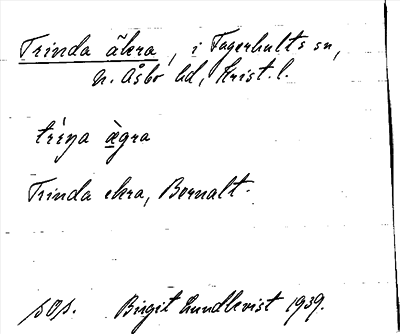 Trinda åkra, i Fagerhults sn,
N. Åsbo hd, Krist. l.
trìŋa ægra
Trinda ekra, Bornalt.
sOp. Birgit Lundkvist 1939.